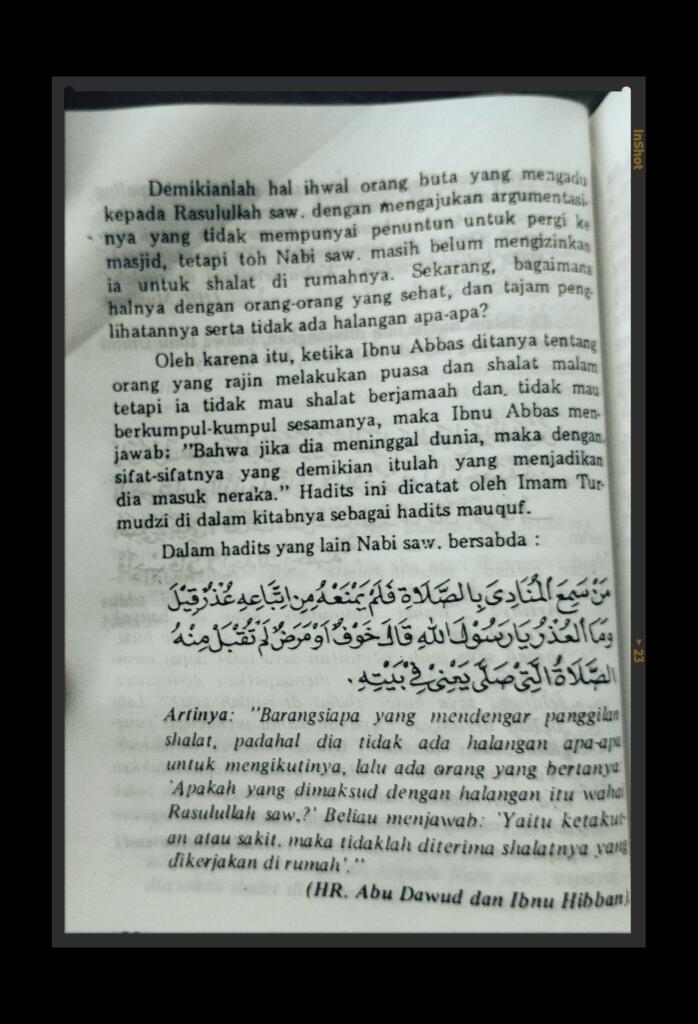 Demikianlah hal ihwal orang buta yang mengadu
kepada Rasulullah saw. dengan mengajukan argumentasi-
nya yang tidak mempunyai penuntun untuk pergi ke
masjid, tetapi toh Nabi saw. masih belum mengizinkan
ia untuk shalat di rumahnya. Sekarang, bagaimana
halnya dengan orang-orang yang sehat, dan tajam peng-
lihatannya serta tidak ada halangan apa-apa?
Oleh karena itu, ketika Ibnu Abbas ditanya tentang
orang yang rajin melakukan puasa dan shalat malam
tetapi ia tidak mau shalat berjamaah dan tidak mau
berkumpul-kumpul sesamanya, maka Ibnu Abbas men-
jawab: "Bahwa jika dia meninggal dunia, maka dengan
sifat-sifatnya yang demikian itulah yang menjadikan
dia masuk neraka." Hadits ini dicatat oleh Imam Tur-
mudzi di dalam kitabnya sebagai hadits mauquf.
Dalam hadits yang lain Nabi saw. bersabda :
مَنْ سَمِعَ الْمُنَادِىَ بِالصَّلَاةِ فَلَمْ يَمْنَعْهُ مِنِ اتِّبَاعِهِ عُذْرٌ قِيْلَ
وَمَا الْعُذْرُ يَا رَسُوْلَ اللهِ قَالَ خَوْفٌ اَوْ مَرَضٌ لَمْ تُقْبَلْ مِنْهُ
الصَّلَاةُ الَّتِىْ صَلَّى يَعْنِىْ فِىْ بَيْتِهِ.
Artinya: "Barangsiapa yang mendengar panggilan
shalat, padahal dia tidak ada halangan apa-apa
untuk mengikutinya, lalu ada orang yang bertanya
'Apakah yang dimaksud dengan halangan itu wahai
Rasulullah saw.?' Beliau menjawab: 'Yaitu ketakut-
an atau sakit, maka tidaklah diterima shalatnya yang
dikerjakan di rumah'."
(HR. Abu Dawud dan Ibnu Hibban)
InShot
23